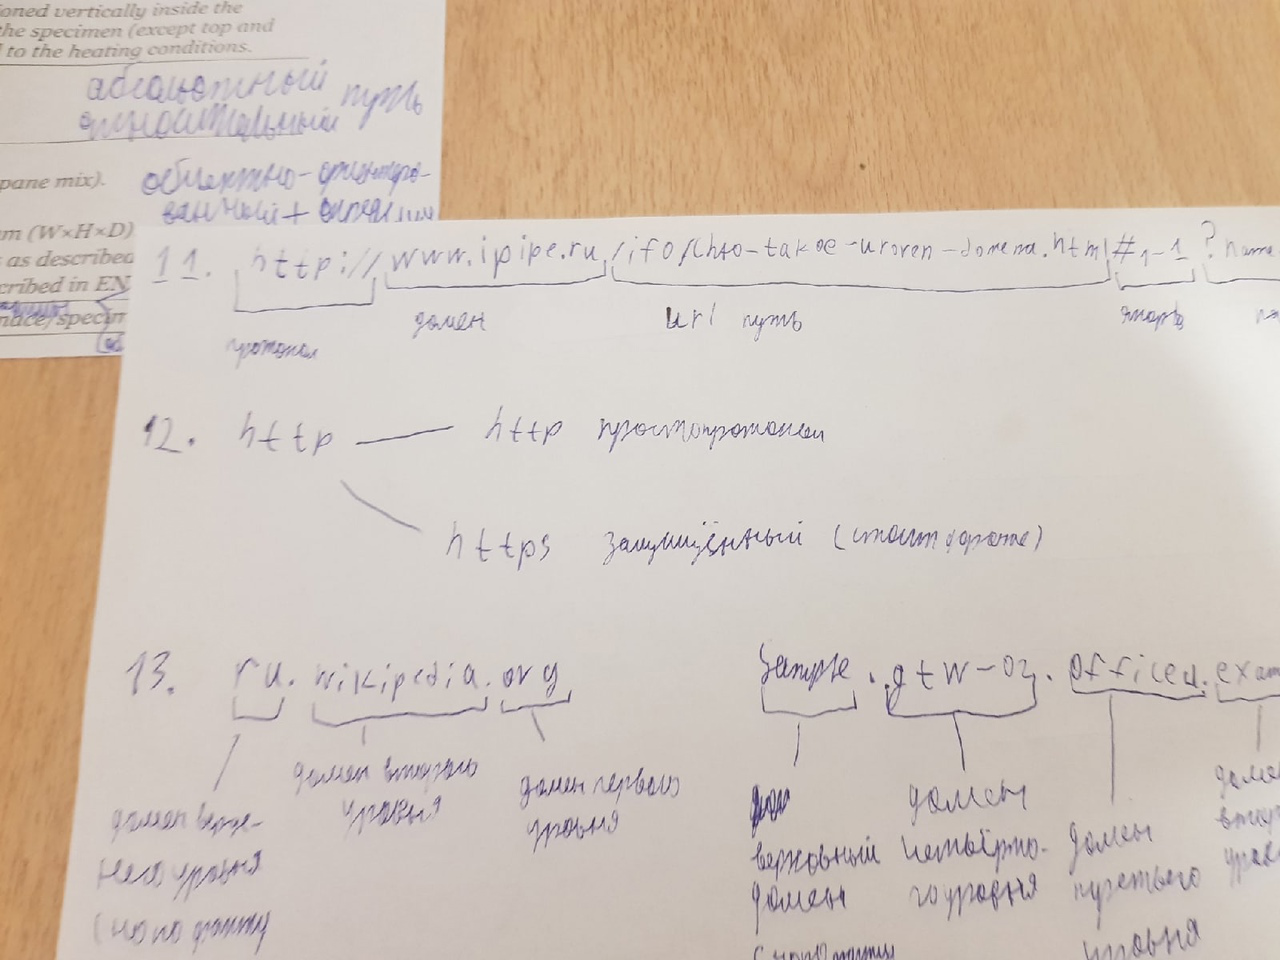 oned vertically inside the
the specimen (except top and
l to the heating conditions.
абсолютный путь
относительный
pane mix).
объектно-ориентиро-
ванный +
m (W×H×D)
as described
cribed in EN
nace/specim
11. http:// www.ipipe.ru /ifo/chto-takoe-uroven-domena.html #1-1 ? name
протокол домен url путь якорь
12. http — http просто протокол
https защищённый (стоит дороже)
13. ru. wikipedia. org
домен верх-
него уровня
(но по факту
домен второго
уровня
домен первого
уровня
Sample . gtw-02. office4. exam
верховный
домен
домен
четвёртно-
го уровня
домен
третьего
уровня
домен